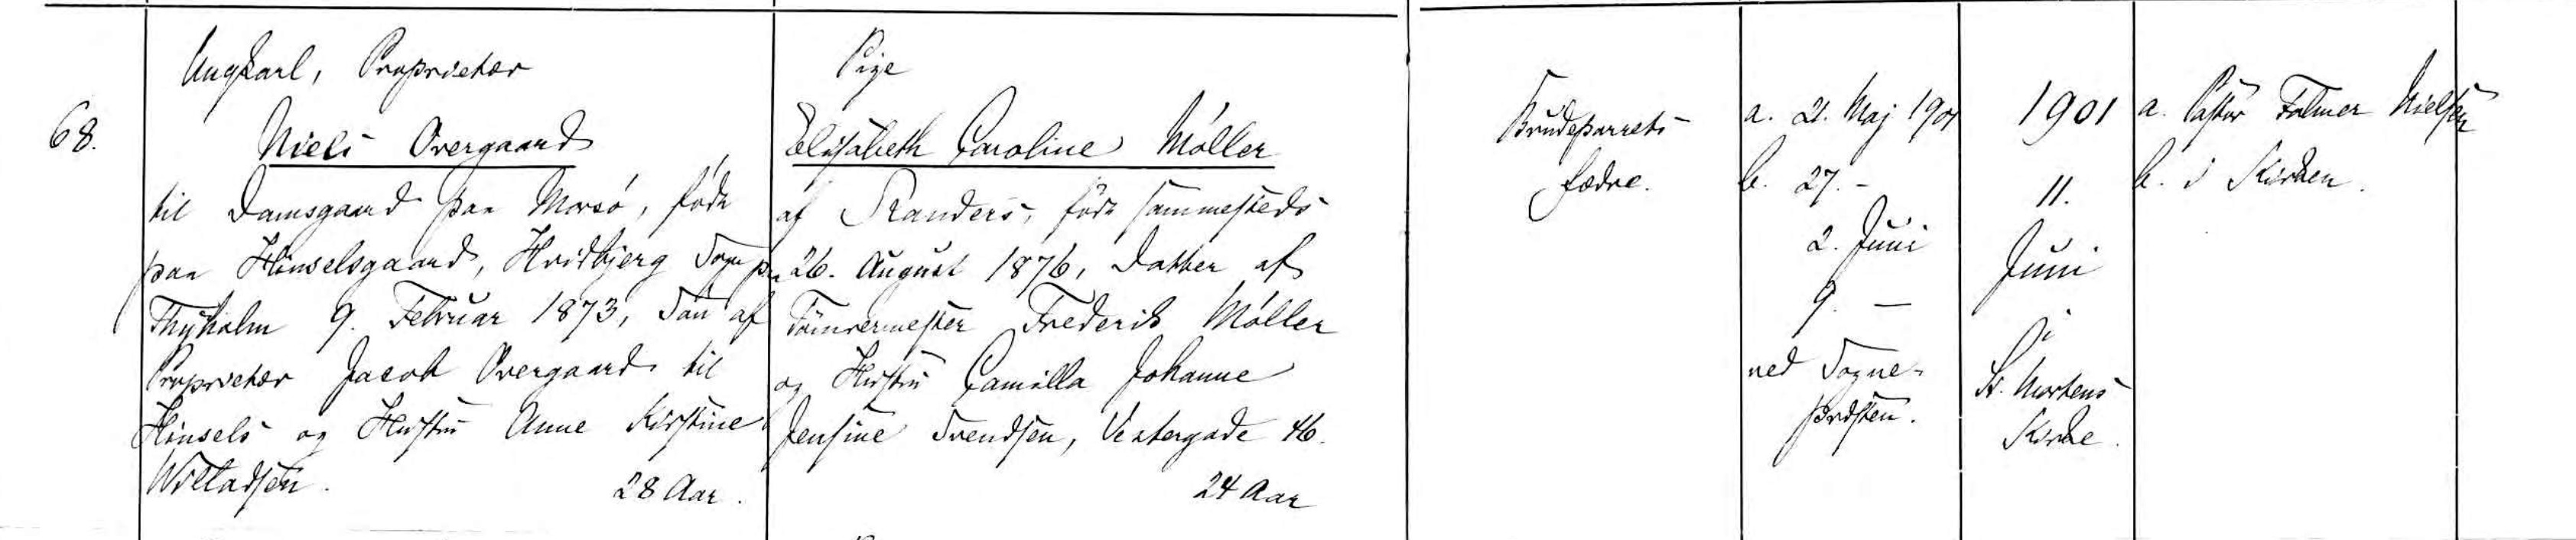 68.
Ungkarl, Proprietær
Niels Overgaard
til Damsgaard paa Morsö, födt
paa Hinselsgaard, Hvidbjerg Sogn paa
Thyholm 9. Februar 1873, Søn af
Proprietær Jacob Overgaard til
Hinsels og Hustru Anne Kirstine
Willadsen. 28 Aar.
Pige
Elisabeth Caroline Möller
af Randers, födt sammesteds
26. August 1876, Datter af
Tömrermester Frederik Möller
og Hustru Camilla Johanne
Jensine Svendsen, Vestergade 46.
24 Aar
Brudeparrets
Fædre.
a. 21. Maj 1901
b. 27. -
2. Juni
9. -
ved Sogne-
præsten.
1901
11.
Juni
i
St. Mortens
Kirke.
a. Pastor Folmer Nielsen
b. i Kirken.